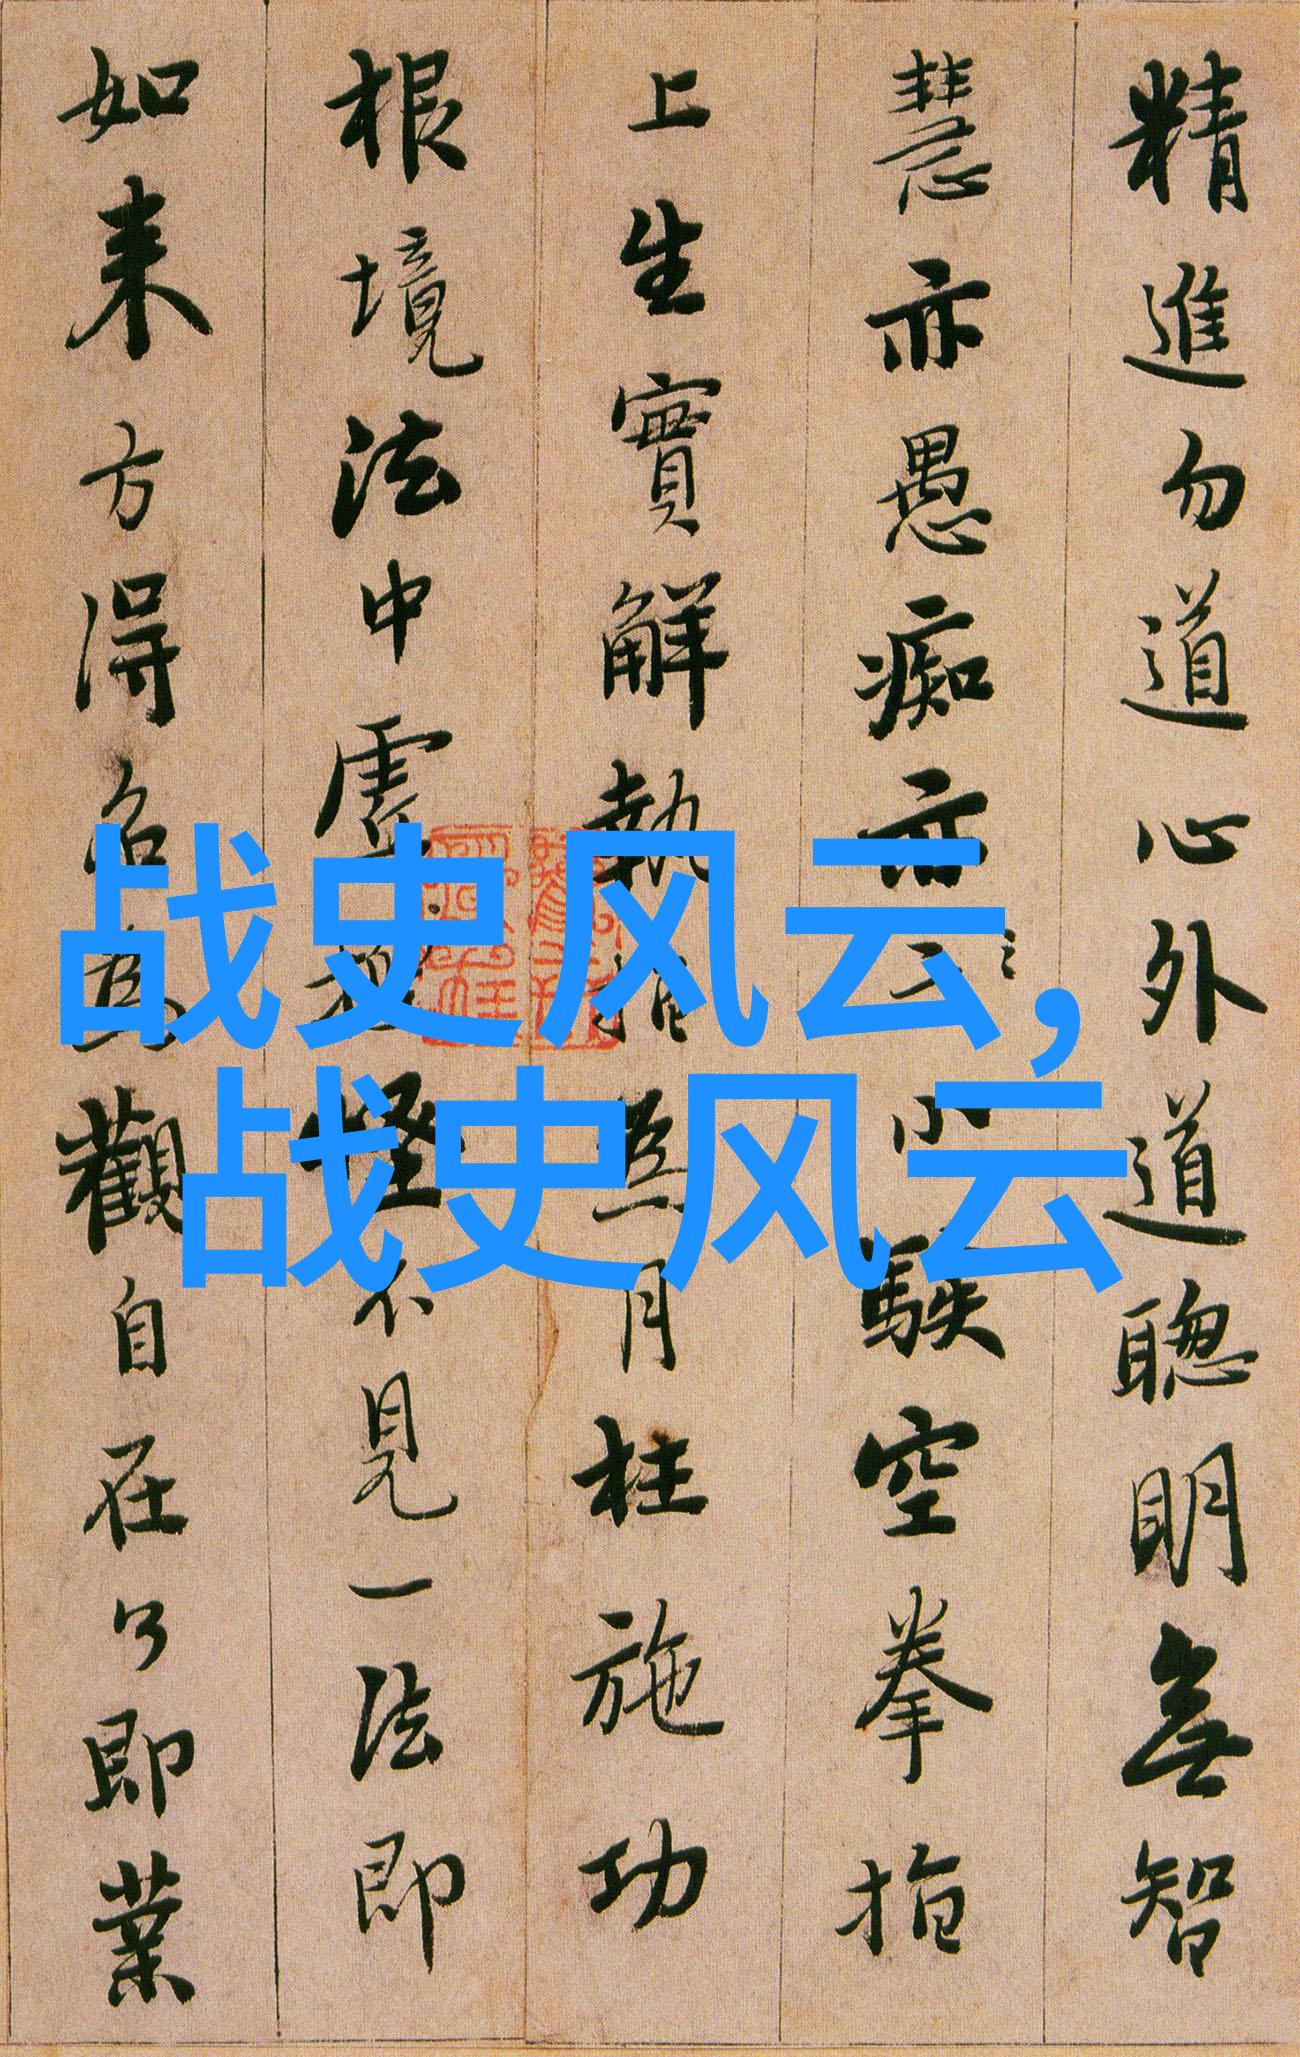 精進勿道心外道聰明無智
慧亦愚痴亦小騃空拳指
上生實解執指為月枉施功
根境法中虛捏怪不見一法即
如來方得名為觀自在了即業
战史风云，
战史风云